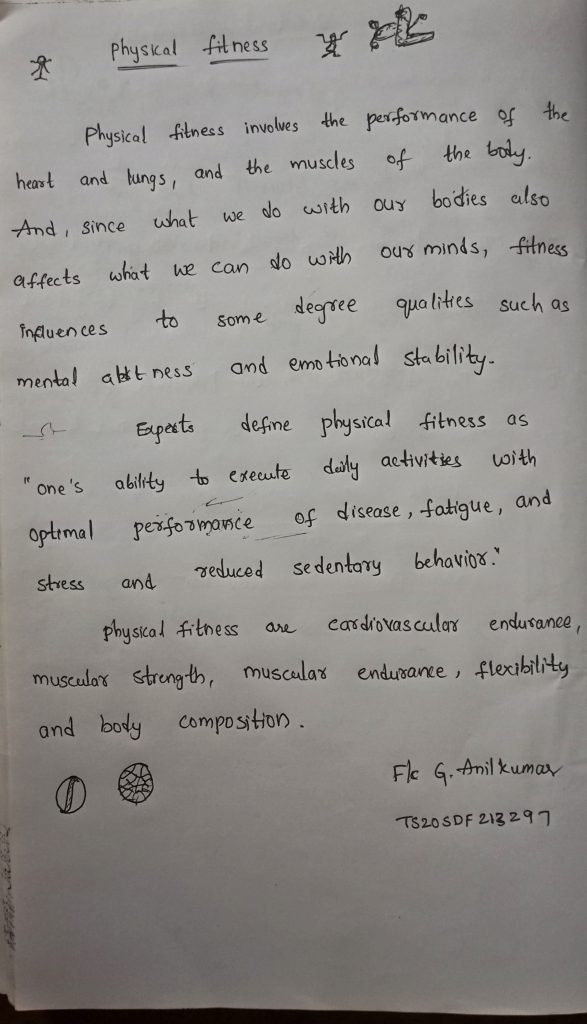 Physical fitness
Physical fitness involves the performance of the
heart and lungs, and the muscles of the body.
And, since what we do with our bodies also
affects what we can do with our minds, fitness
influences to some degree qualities such as
mental ness and emotional stability.
Experts define physical fitness as
"one's ability to execute daily activities with
optimal performance of disease, fatigue, and
stress and reduced sedentary behavior."
physical fitness are cardiovascular endurance,
muscular strength, muscular endurance, flexibility
and body composition.
G. Anilkumar
TS20SDF213297